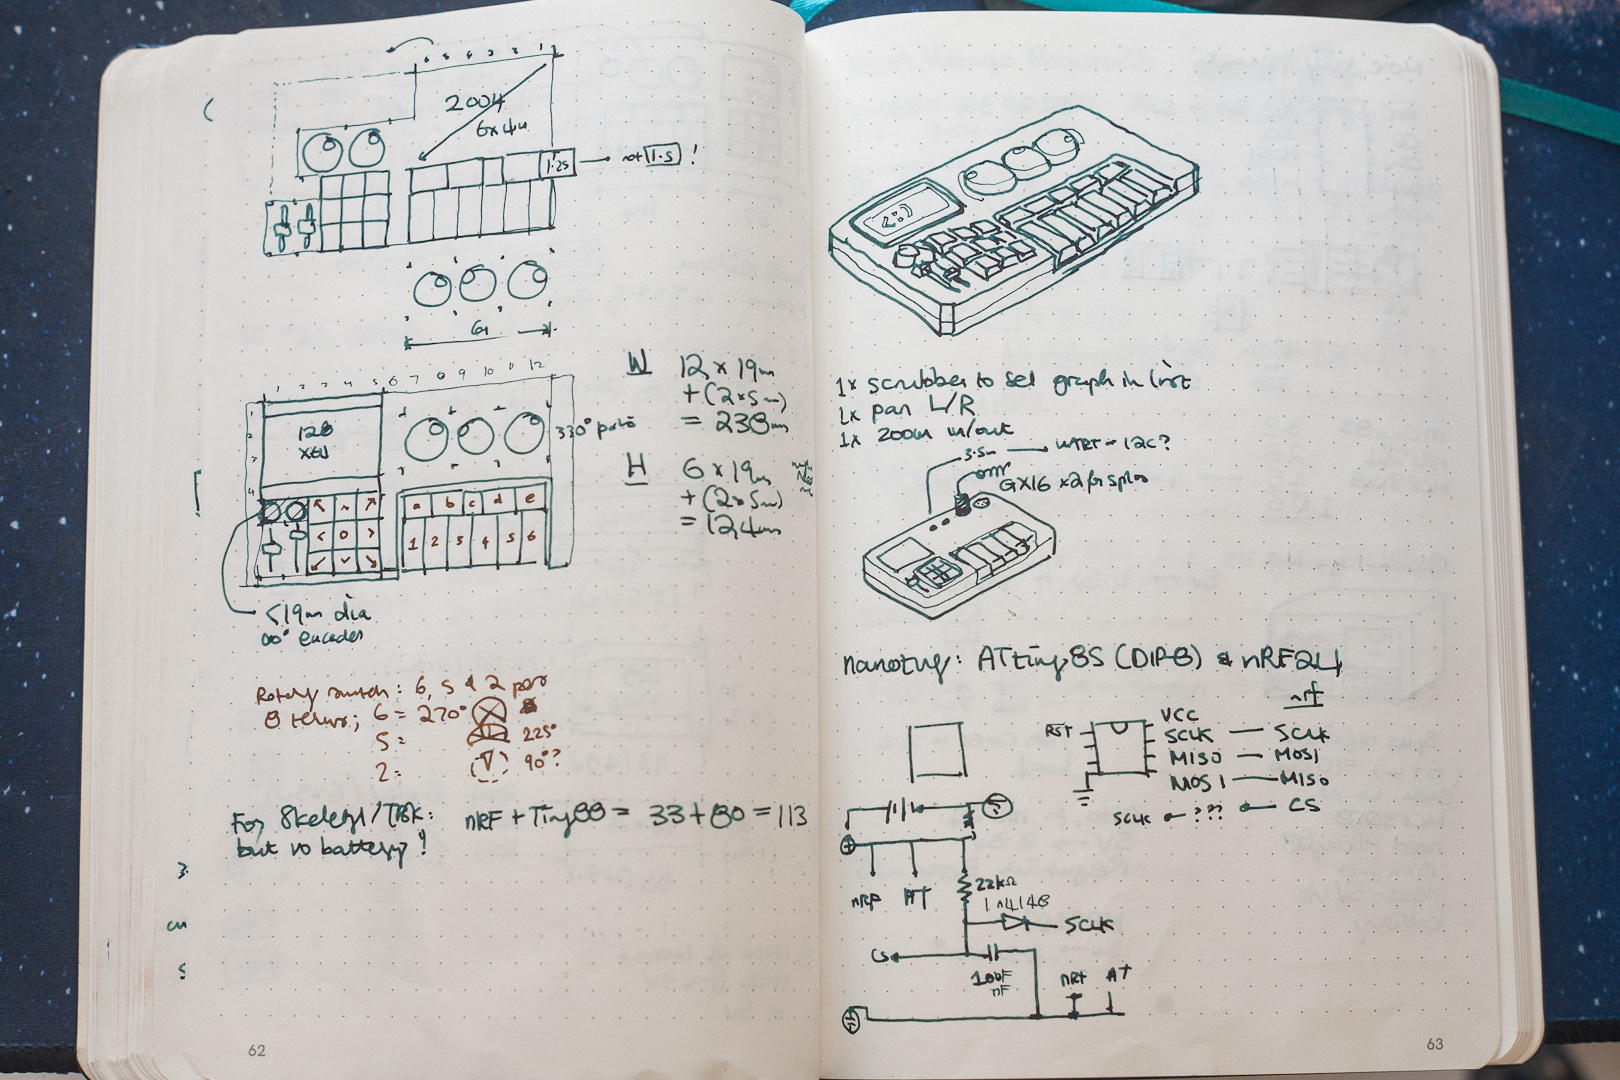 6 5 4 3 2 1
2004
6x4u
1.25
not 1.5 !
6u
1 2 3 4 5 6 7 8 9 10 11 12
128
x64
330° pots
a b c d e
< 0 >
1 2 3 4 5 6
<19mm dia
∞° encoder
W 12 x 19mm
+ (2x5mm)
= 238mm
H 6 x 19mm
+ (2x5mm)
= 124mm
Rotary switch: 6, 5 & 2 pos
8 6 = 270°
5 = 225°
2 = 90°?
For Skeletyl/TBK: nRF + Tiny88 = 33+80 = 113
but no battery!
62
1x scrubber to sel graph in list
1x pan L/R
1x zoom in/out
3.5mm UART or I2C?
GX16 x2 for
ATtiny85 (DIP-8) & nRF24
nrf
RST VCC
SCLK — SCLK
MISO — MOSI
MOSI — MISO
SCLK ??? CS
nRF AT
22kΩ
1N4148
SCLK
CS
100F
nF
nRF AT
63